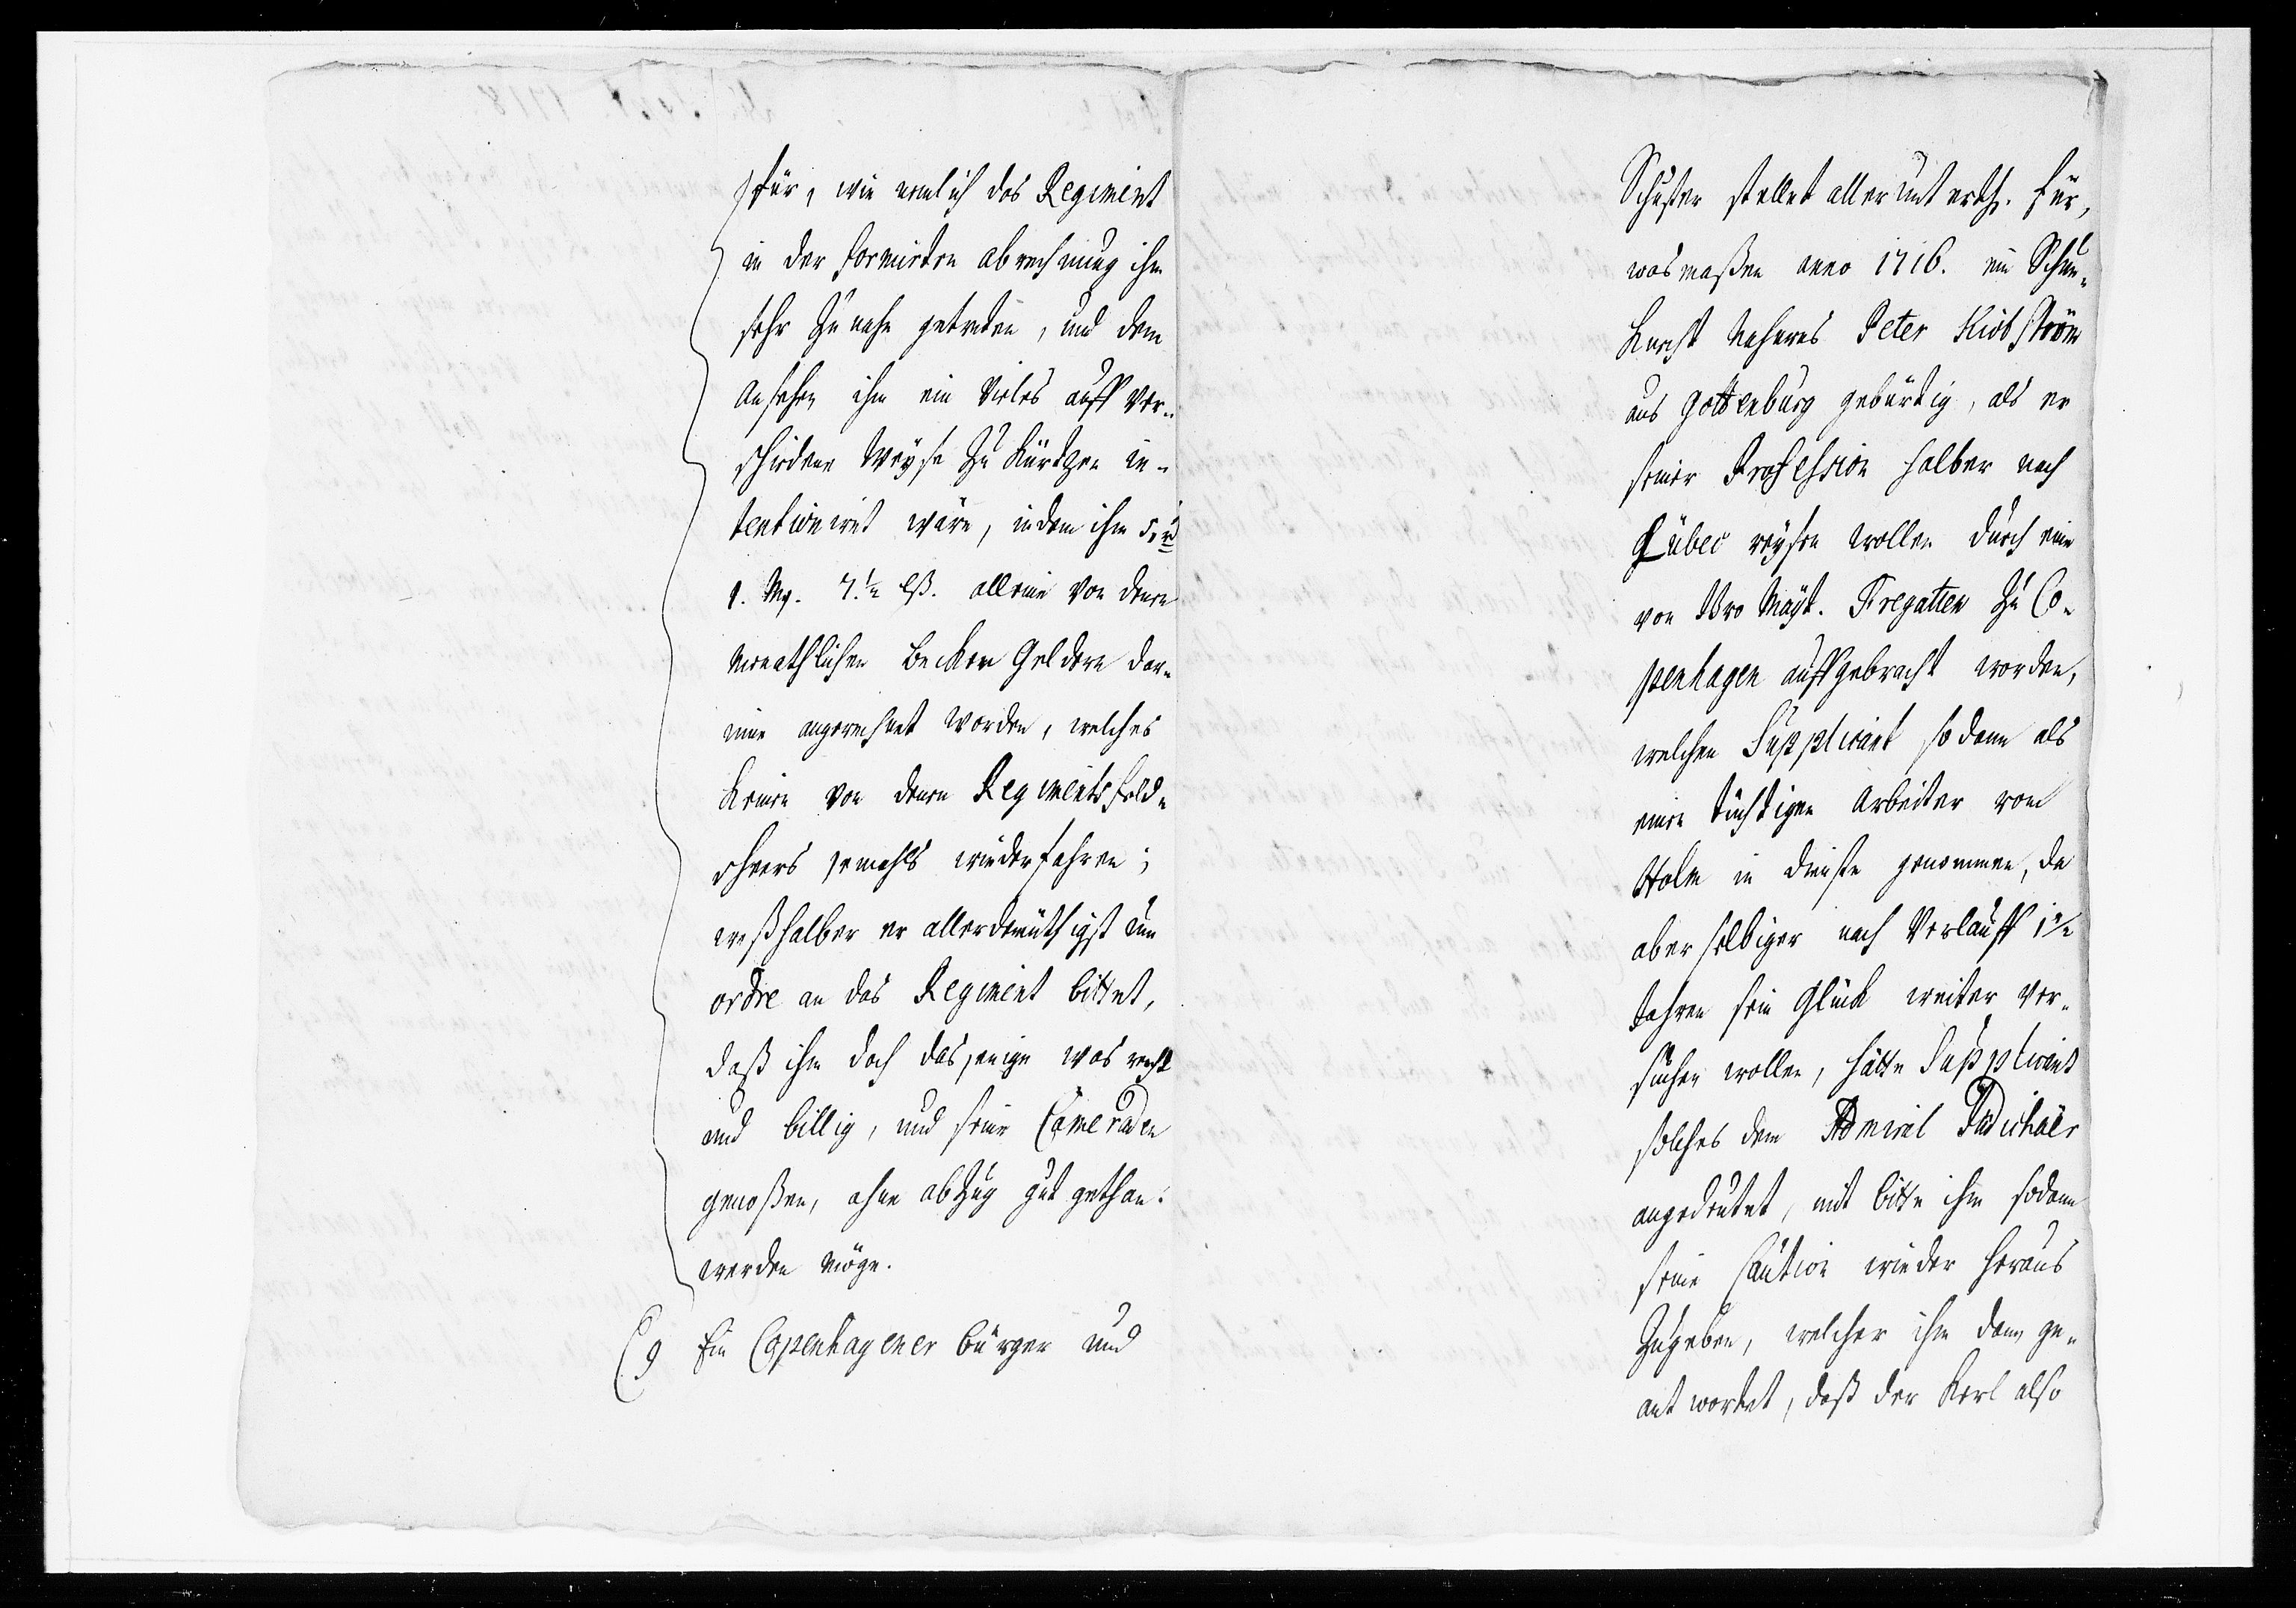 für, wie nemlich das Regiment
in der formirten abrechnung ihm
sehr zu nahe getreten, und dem
ansehen ihm ein vieles auff ver-
schiedene Weyse zu kürtzen in-
tentioniret wäre, indem ihm 5 rd
1. Mg. 7 ½ lß. alleine von denen
Monathlichen Becken Geldern dar-
inne angerechnet worden, welches
keinen von denen Regimentsfeld-
scheers jemahls wiederfahren;
weßhalber er allerdemüthigst um
ordre an das Regiment bittet,
daß ihm doch dasjenige was recht
und billig, und seine Cameraden
genoßen, ohne abzug gut gethan
werden möge.
9 Ein Copenhagener bürger und
Schuster stellet allerunterth. für,
was maßen anno 1716. ein Schu-
Knecht Nahmens Peter Kiöbström
aus Gottenburg gebürtig, als er
seiner Profession halber nach
Lübec reysen wollen durch eine
von Ihro Mayt. Fregatten zu Co-
penhagen auffgebracht worden,
welchen Supplicant sodann als
einen tüchtigen Arbeiter vom
Holm in dienste genommen, da
aber selbiger nach Verlauff 1½
Jahren sein Glück weiter ver-
suchen wollen, hätte Supplicant
solches dem Admiral Judichäer
angedeutet, mit bitte ihm sodann
seine Caution wieder heraus
zugeben, welcher ihm dann ge-
antwortet, daß der Kerl also